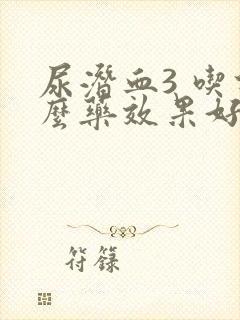 尿潛血3 喫
麼藥效果好
符籙